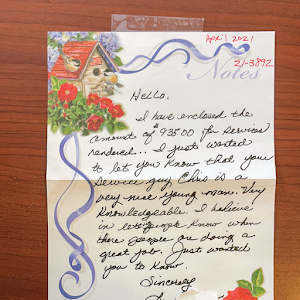 April 2021
21-3892
Notes
Hello,
I have enclosed the
amount of 93500 for services
rendered... I just wanted
to let you know that your
service guy Chris is a
very nice young man. Very
Knowledgeable. I believe
in letting people know when
there people are doing a
great job. Just wanted
you to know.
Sincerely